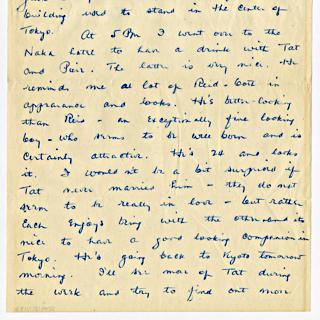 building used to stand in the center of
Tokyo.
At 5 PM I went over to the
Naka hotel to have a drink with Tat
and Peir. The latter is very nice. He
reminds me a lot of Reid - both in
appearance and looks. He's better-looking
than Reid - an exceptionally fine looking
boy - who seems to be well born and is
certainly attractive. He's 24 and looks
it. I wouldn't be a bit surprised if
Tat never married him - they do not
seem to be really in love - but rather
each enjoys being with the other and its
nice to have a good looking companion in
Tokyo. He's going back to Kyoto tomorrow
morning. I'll see more of Tat during
the week and try to find out more